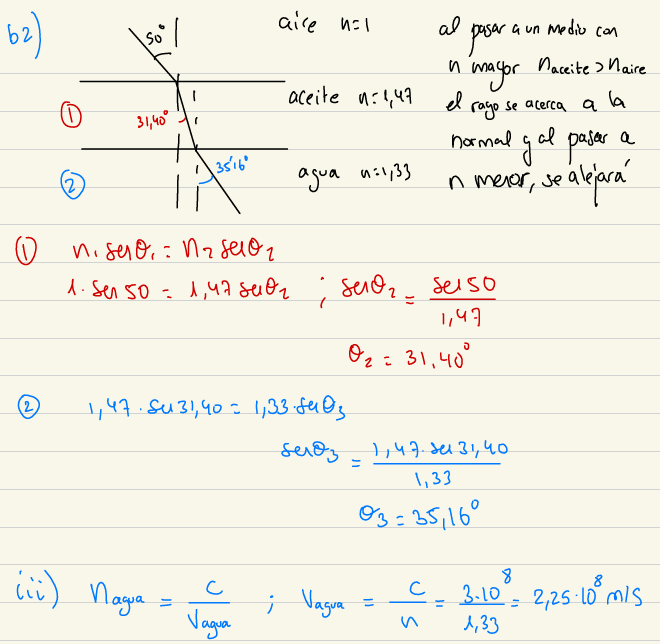 b2)
50°
aire n=1
aceite n=1,47
agua n=1,33
31,40°
35'16°
①
②
al pasar a un medio con
n mayor naceite > naire
el rayo se acerca a la
normal y al pasar a
n menor, se alejará
① n₁ senθ₁ = n₂ senθ₂
1. sen 50 = 1,47 senθ₂ ; senθ₂ = sen 50 / 1,47
θ₂ = 31,40°
② 1,47 · sen 31,40 = 1,33 · senθ₃
senθ₃ = 1,47 · sen 31,40 / 1,33
θ₃ = 35,16°
iii) nagua = c / Vagua ; Vagua = c / n = 3·10⁸ / 1,33 = 2,25·10⁸ m/s